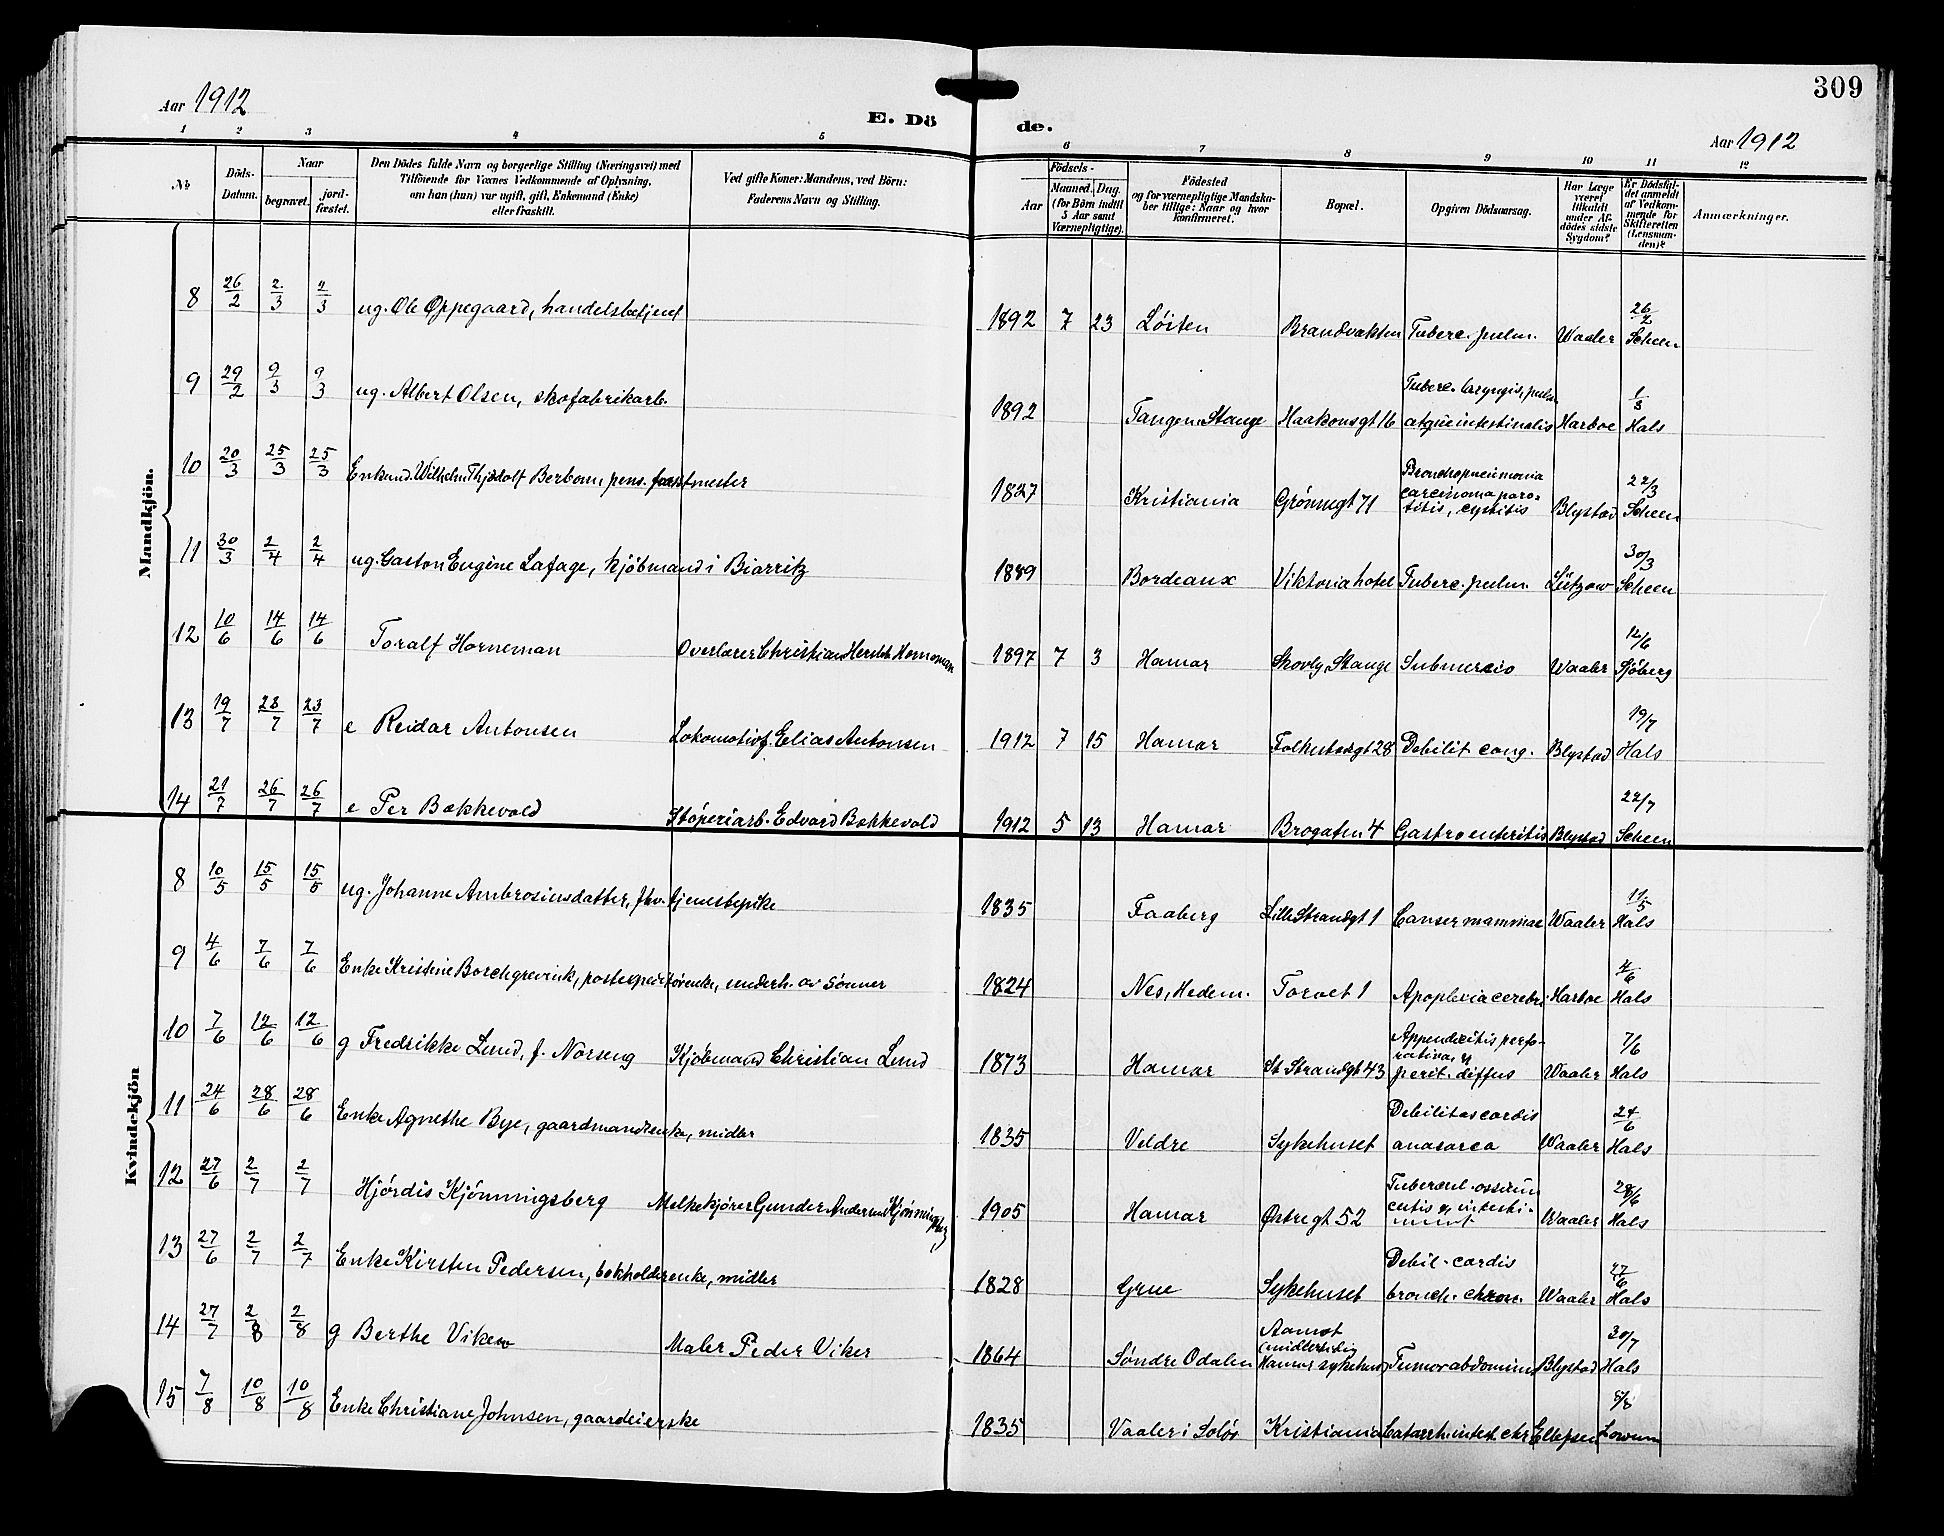 309
Aar 1912
E. Dö de.
Aar 1912
1 2 3 4 5 6 7 8 9 10 11 12
No
Döds-Datum.
Naar
begravet.
jord-fæstet.
Den Dödes fulde Navn og borgerlige Stilling (Næringsvei) med
Tilföiende for Voxnes Vedkommende af Oplysning,
om han (hun) var ugift, gift, Enkemand (Enke)
eller fraskilt.
Ved gifte Koner: Mandens, ved Börn:
Faderens Navn og Stilling.
Födsels-
Aar
Maaned. Dag.
(for Börn indtil
5 Aar samt
Værnepligtige).
Födested
og for værnepligtige Mandska-
ber tillige: Naar og hvor
konfirmeret.
Bopæl.
Opgiven Dödsaarsag.
Har Læge
været
tilkaldt
under Af-
dödes sidste
Sygdom?
Er Dödsfal-
det anmeldt
af Vedkom-
mende for
Skifteretten
(Lensman-
den)?
Anmærkninger.
Mandkjön.
8 26/2 2/3 2/3 ug. Ole Oppegaard, handelsbetjent 1892 7 23 Löiten Brandvakten Tuberc. pulm. Waaler 26/2 Scheen
9 29/2 9/3 9/3 ug. Albert Olsen, skofabrikarb. 1892 Tangen, Stange Haakonsgt 16 Tuberc. laryngis, pulm. atque intestinalis Harboe 1/3 Hals
10 20/3 25/3 25/3 Enkemd. Wilhelm Thjodolf Berbom, pens. forstmester 1827 Kristiania Grönnegt 71 Bronchopneumonia carcinoma paro- titis, cystitis Blystad 22/3 Scheen
11 30/3 2/4 2/4 ug. Gaston Eugène Lafage, kjöbmand i Biarritz 1889 Bordeaux Viktoria hotel Tuberc. pulm. Lützow 30/3 Scheen
12 10/6 14/6 14/6 Toralf Horneman Overlærer Christian Hersleb Horneman 1897 7 3 Hamar Skovly, Stange Submersio Waaler 12/6 Sjöberg
13 19/7 23/7 23/7 e Reidar Antonsen Lokomotivf. Elias Antonsen 1912 7 15 Hamar Folkestadgt 28 Debilit cong. Blystad 19/7 Hals
14 21/7 26/7 26/7 e Per Bakkevold Stöperiarb. Edvard Bakkevold 1912 5 13 Hamar Brogaten 4 Gastroenteritis Blystad 22/7 Scheen
Kvindekjön
8 10/5 15/5 15/5 ug. Johanne Ambrosiusdatter, fhv. tjenestepike 1835 Faaberg Lille Strandgt 1 Canser mammae Waaler 11/5 Hals
9 4/6 7/6 7/6 Enke Kristine Borchgrevink, postexpeditörenke, underh. av sönner 1824 Nes, Hedem. Torvet 1 Apoplexia cerebri Harboe 4/6 Hals
10 7/6 12/6 12/6 g Fredrikke Lund, f. Norseng Kjöbmand Christian Lund 1873 Hamar St. Strandgt 43 Appendicitis perfo- rativa, & perit. diffus Waaler 7/6 Hals
11 24/6 28/6 28/6 Enke Agnethe Bye, gaardmandsenke, midler 1835 Veldre Sykehuset Debilitas cordis anasarca Waaler 24/6 Hals
12 27/6 2/7 2/7 Hjördis Kjönningsberg Melkekjörer Gunder Andersen Kjönningsberg 1905 Hamar Östregt 52 Tubercul. ossium cutis & intesti- Waaler 28/6 Hals
13 27/6 2/7 2/7 Enke Kirsten Pedersen, bokholderenke, midler 1828 Grue Sykehuset Debil. cordis bronch. chron. Waaler 27/6 Hals
14 27/7 2/8 2/8 g Berthe Viker Maler Peder Viker 1864 Söndre Odalen Aamot (midlertidig Hamar sykehus) Tumor abdominis Blystad 30/7 Hals
15 7/8 10/8 10/8 Enke Christiane Johnsen, gaardeierske 1835 Vaaler i Solör Kristiania Catarrh. intest. chr. Ellefsen 8/8